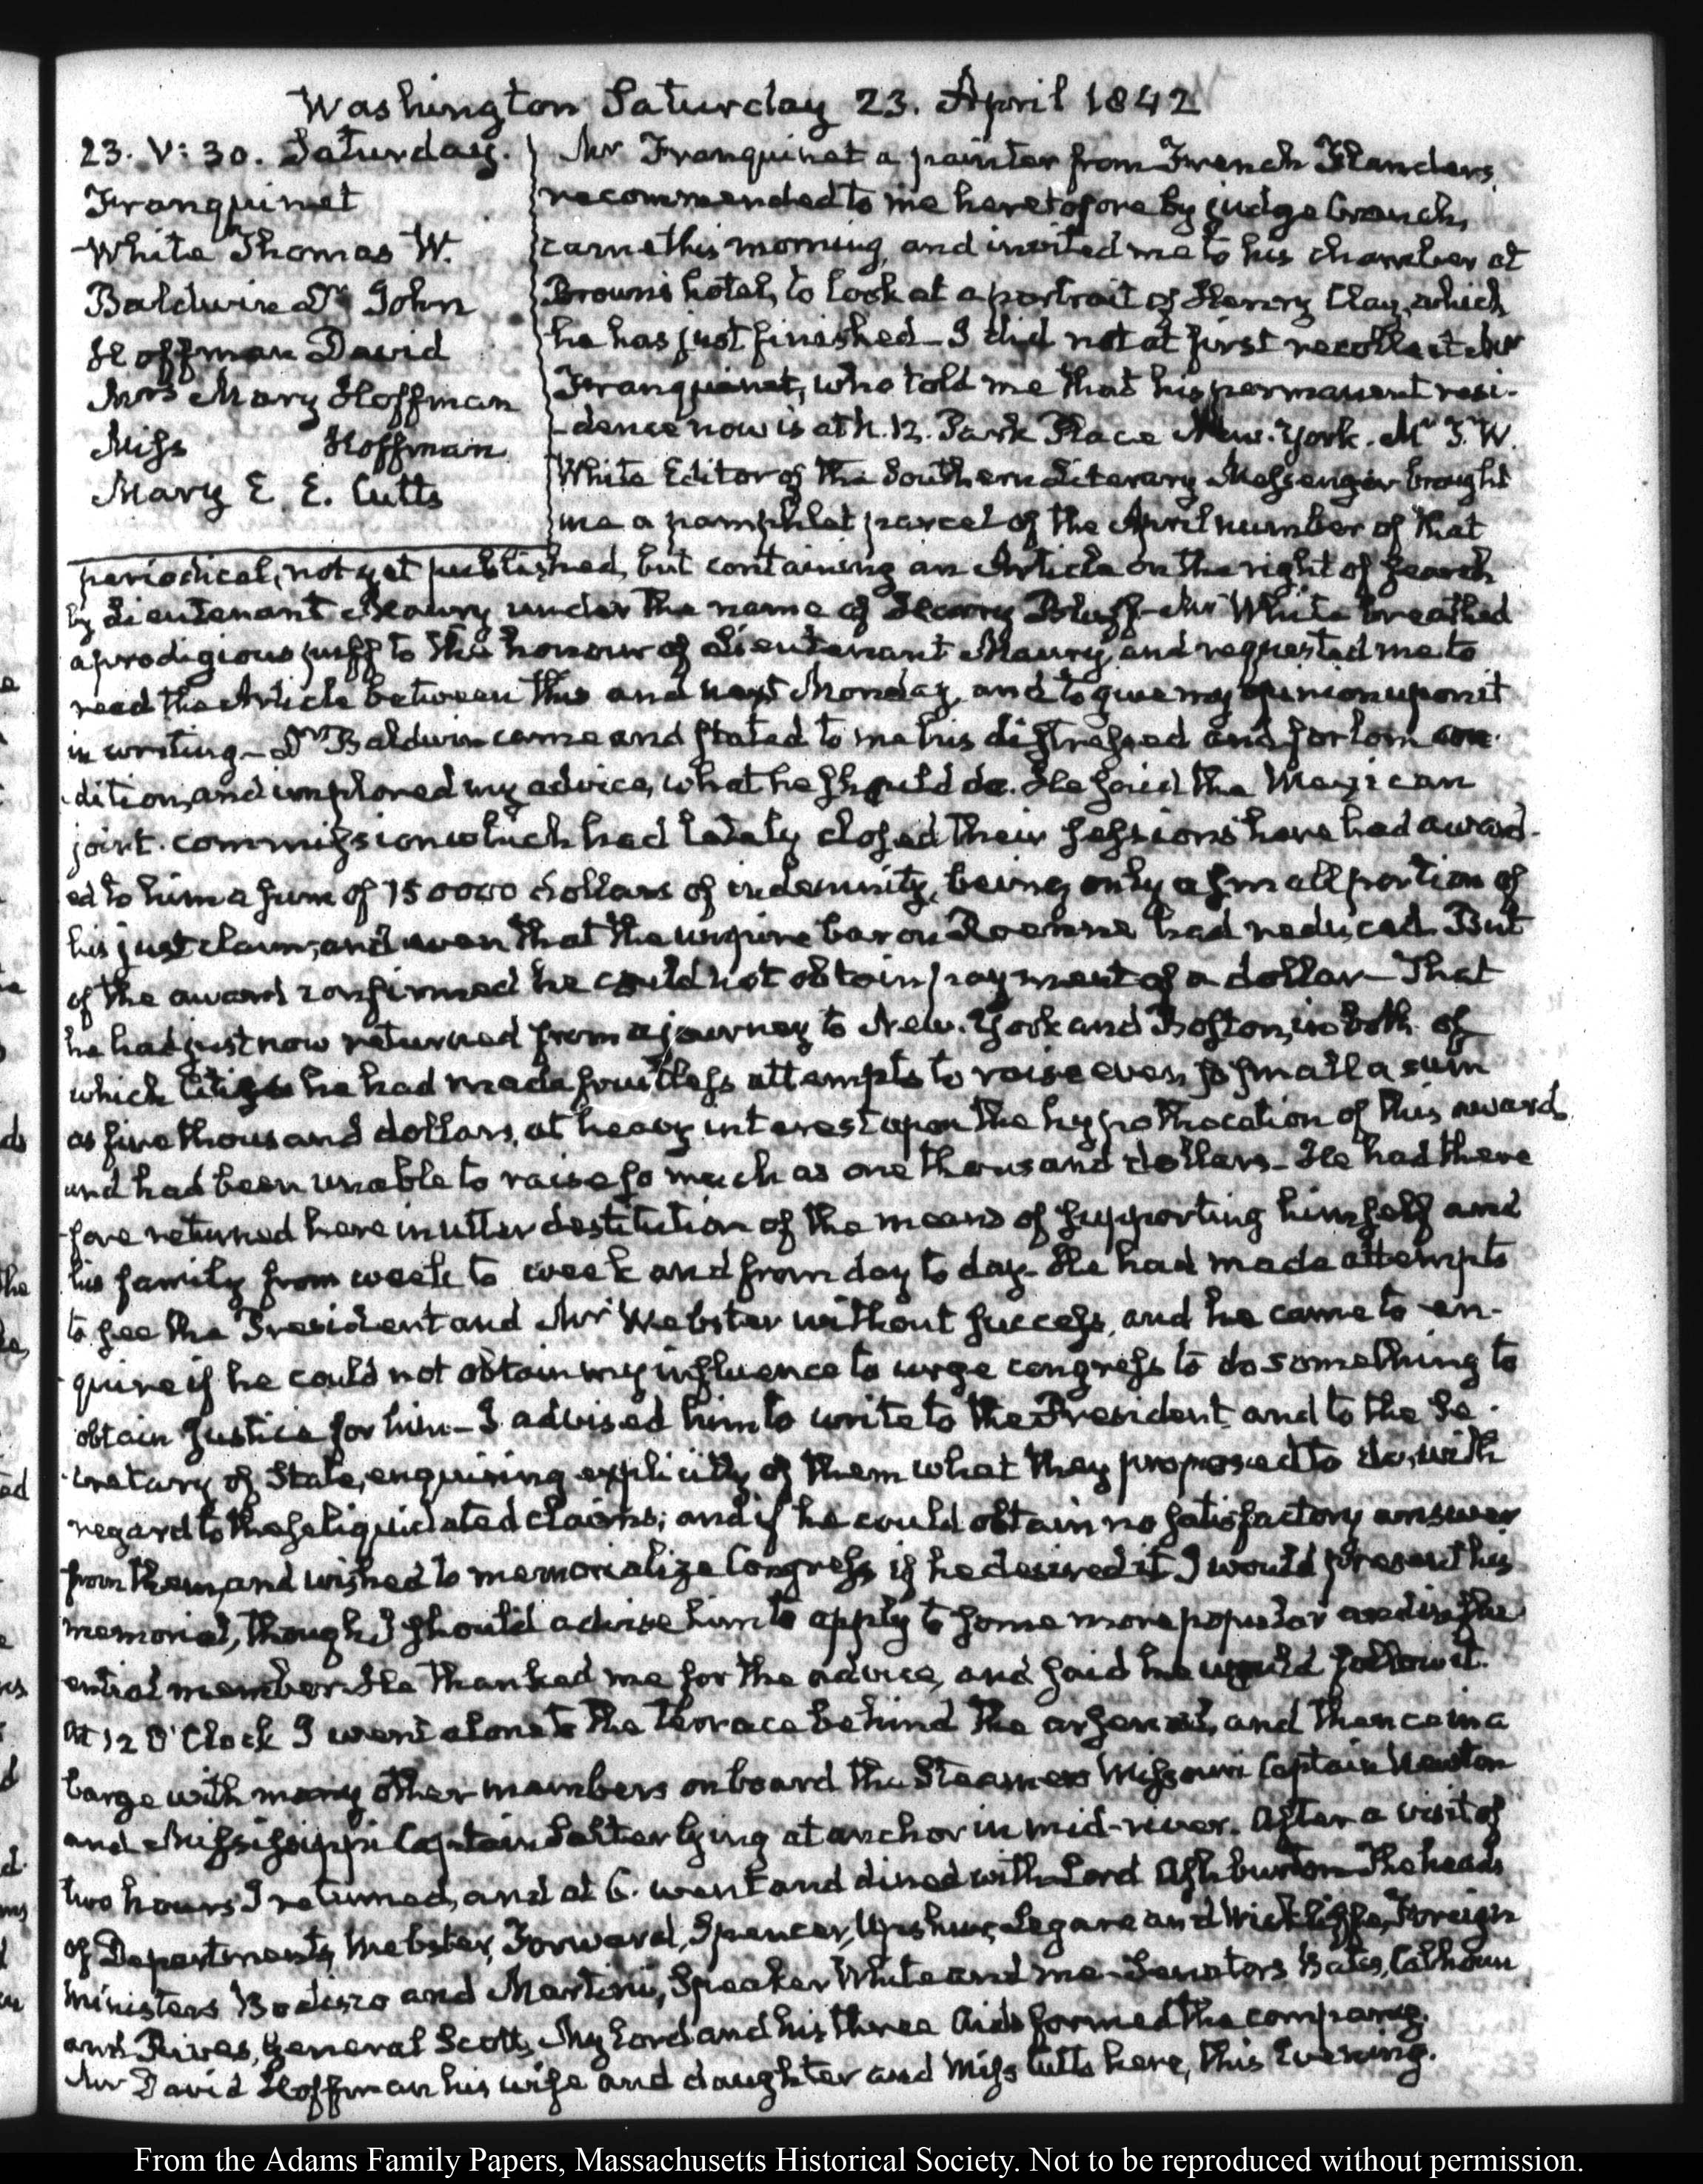 Washington Saturday 23. April 1842
23. V: 30. Saturday.
Franquinet
White Thomas W.
Baldwin Dr. John
Hoffman David
Mrs Mary Hoffman
Miss Hoffman
Mary E. E. Cutts
Mr Franquinet a painter from French Flanders,
recommended to me heretofore by judge Cranch,
came this morning, and invited me to his chamber at
Brown's hotel, to look at a portrait of Henry Clay, which
he has just finished— I did not at first recollect Mr
Franquinet, who told me that his permanent resi-
-dence now is at N. 12. Park Place New-York. Mr T. W.
White Editor of the Southern Literary Messenger brought
me a pamphlet parcel of the April number of that
periodical, not yet published, but containing an Article on the right of search
by Lieutenant Maury under the name of Harry Bluff— Mr White breathed
a prodigious puff to the honour of Lieutenant Maury, and requested me to
read the Article between this and next Monday, and to give my opinion upon it
in writing— Dr Baldwin came and stated to me his distressed and forlorn con-
-dition, and implored my advice, what he should do. He said the Mexican
joint-commission which had lately closed their sessions here had award-
ed to him a sum of 150000 dollars of indemnity, being only a small portion of
his just claim, and even that the umpire baron Roenne had reduced. But
of the award confirmed he could not obtain payment of a dollar— That
he had just now returned from a journey to New-York and Boston, in both of
which Cities he had made fruitless attempts to raise even so small a sum
as five thousand dollars, at heavy interest upon the hypothecation of this award
and had been unable to raise so much as one thousand dollars— He had there
-fore returned here in utter destitution of the means of supporting himself and
his family from week to week and from day to day— He had made attempts
to see the President and Mr Webster without success, and he came to en-
-quire if he could not obtain my influence to urge congress to do something to
obtain justice for him— I advised him to write to the President and to the Se-
-cretary of State, enquiring explicitly of them what they proposed to do, with
regard to these liquidated claims; and if he could obtain no satisfactory answer
from them, and wished to memorialize Congress, if he desired it I would present his
memorial, though I should advise him to apply to some more popular and influ
ential member. He thanked me for the advice, and said he would follow it.
At 12 O'Clock I went alone to the terrace behind the arsenal, and thence in a
barge with many other members on board the Steamers Missouri Captain Newton
and Mississippi Captain Salter lying at anchor in mid-river. After a visit of
two hours I returned, and at 6. went and dined with Lord Ashburton— The heads
of Departments, Webster, Forward, Spencer, Upshur, Legare and Wickliffe, Foreign
Ministers Bodisco and Martini, Speaker White and me— Senators Bates, Calhoun
and Rives, General Scott, My Lord and his three Aids formed the company.
Mr David Hoffman his wife and daughter and Miss Cutts here, this Evening.
From the Adams Family Papers, Massachusetts Historical Society. Not to be reproduced without permission.